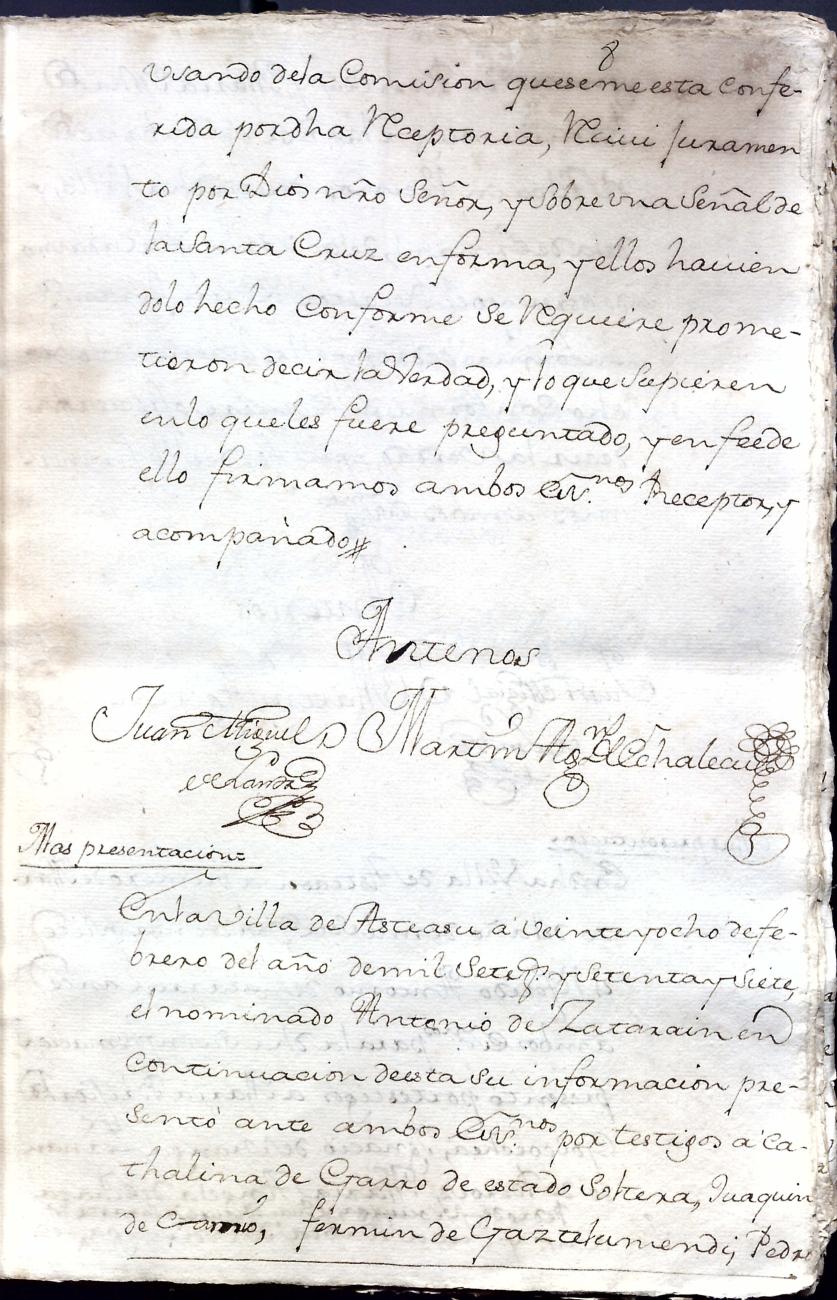 8
usando dela Comision quesemeesta Confe-
rida pordha Receptoria, Recivi Juramen
to por Dios nrõ Señor, y sobre una Señal de
la Santa Cruz enforma, y ellos havien
dolo hecho Conforme se Requiere prome-
tieron decir la Verdad, y lo que supieren
enlo queles fuere preguntado, y en feede
ello firmamos ambos Esv.nos Receptor, y
acompañado
Antenos
Juan Miguel Martin Ag.n de Echaleau
Mas presentacion=
En la Villa de Asteasu a veinteyocho defe-
brero del año demil Setez.s y Setentaysiete,
el nominado Antonio de Zatarain en
Continuacion deesta su informacion pre-
sentó ante ambos Esv.nos por testigos a Ca-
thalina de Garro de estado Soltera, Juaquin
de Garro, fermin de Gaztelumendi, Pedro